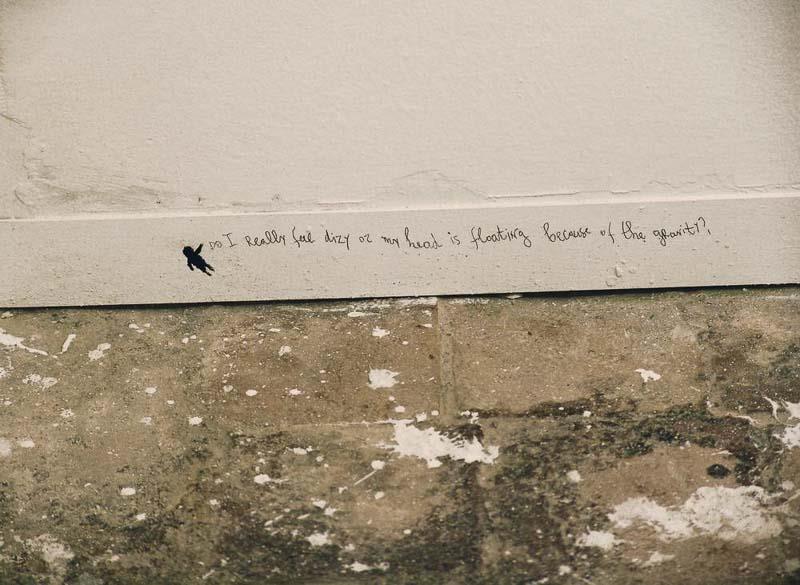 DO I Really feel dizy or my head is floating because of the gravity?